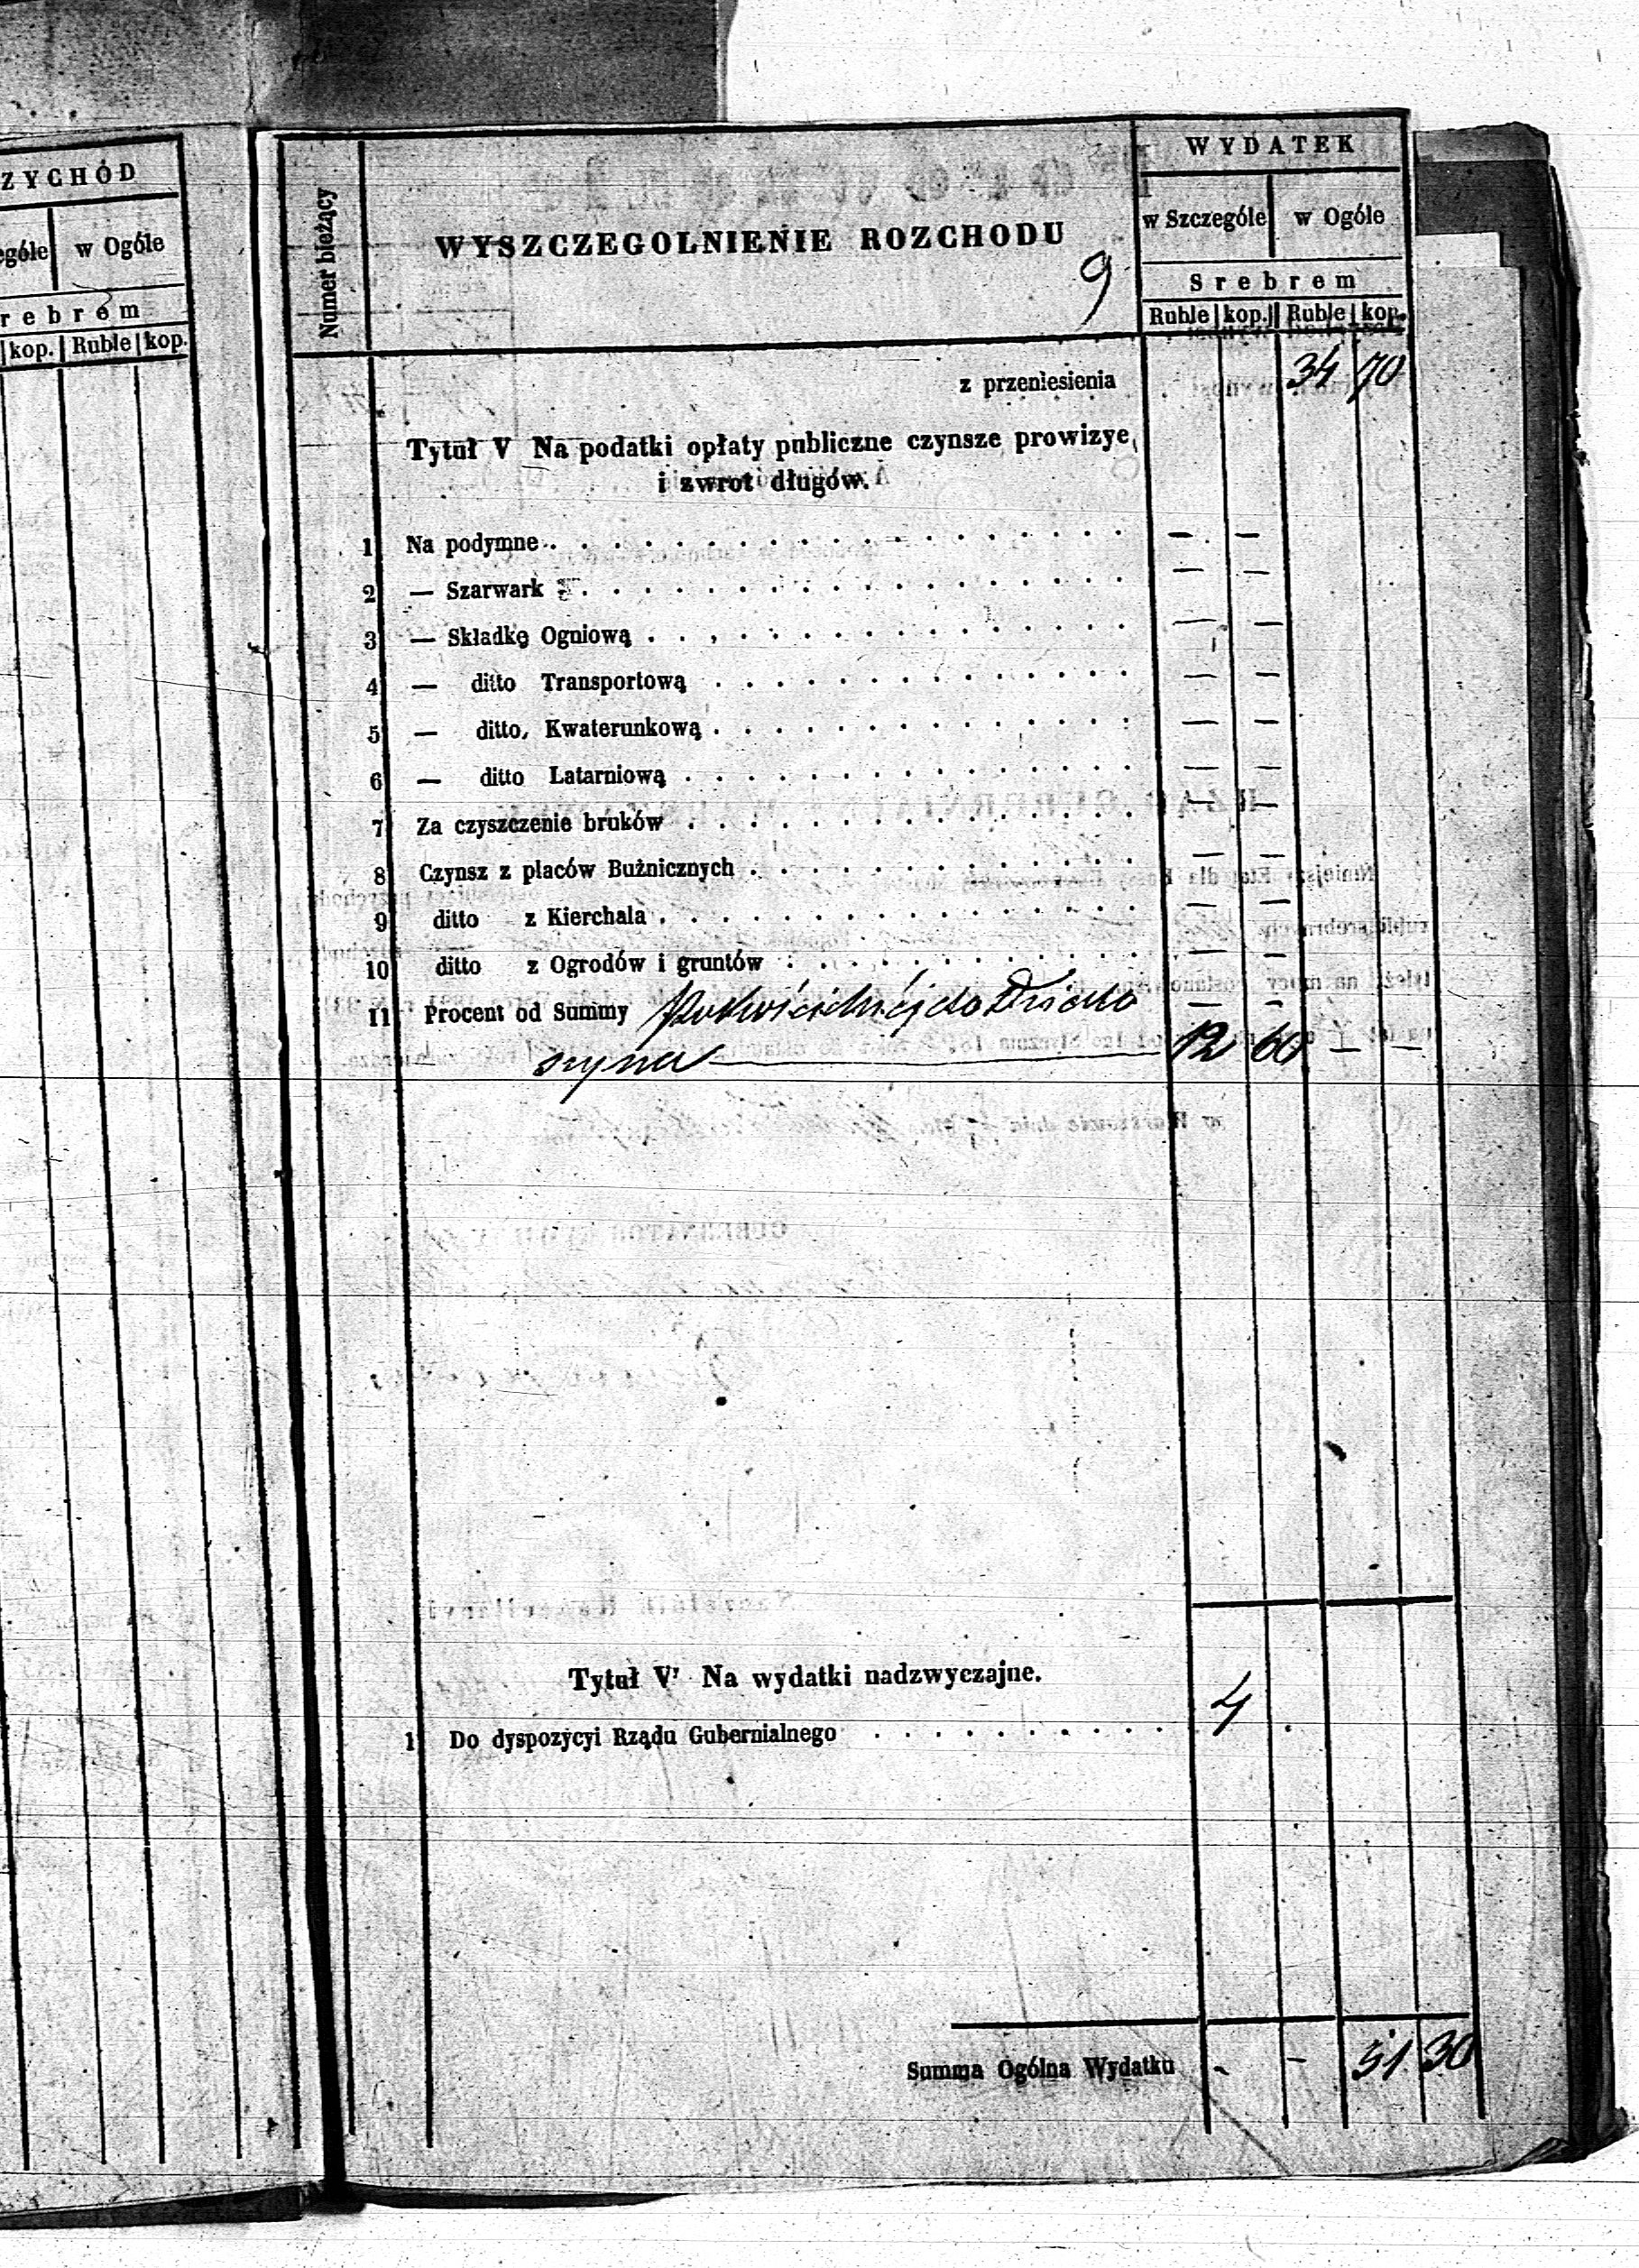 ZYCHÓD
ególe w Ogóle
rebrem
kop. Ruble kop.
Numer bieżący
WYSZCZEGOLNIENIE ROZCHODU
9
WYDATEK
w Szczególe w Ogóle
Srebrem
Ruble kop. Ruble kop.
z przeniesienia 34 70
Tytuł V Na podatki opłaty publiczne czynsze prowizye
i zwrot długów.
1 Na podymne . . . — —
2 — Szarwark . . . — —
3 — Składkę Ogniową . . . — —
4 — ditto Transportową . . . — —
5 — ditto, Kwaterunkową . . . — —
6 — ditto Latarniową . . . — —
7 Za czyszczenie bruków . . . — —
8 Czynsz z placów Bużnicznych . . . — —
9 ditto z Kierchala . . . — —
10 ditto z Ogrodów i gruntów . . . — —
11 Procent od Summy — —
12 60 — —
Tytuł V' Na wydatki nadzwyczajne.
1 Do dyspozycyi Rządu Gubernialnego . . . 4
Summa Ogólna Wydatku - - 51 30